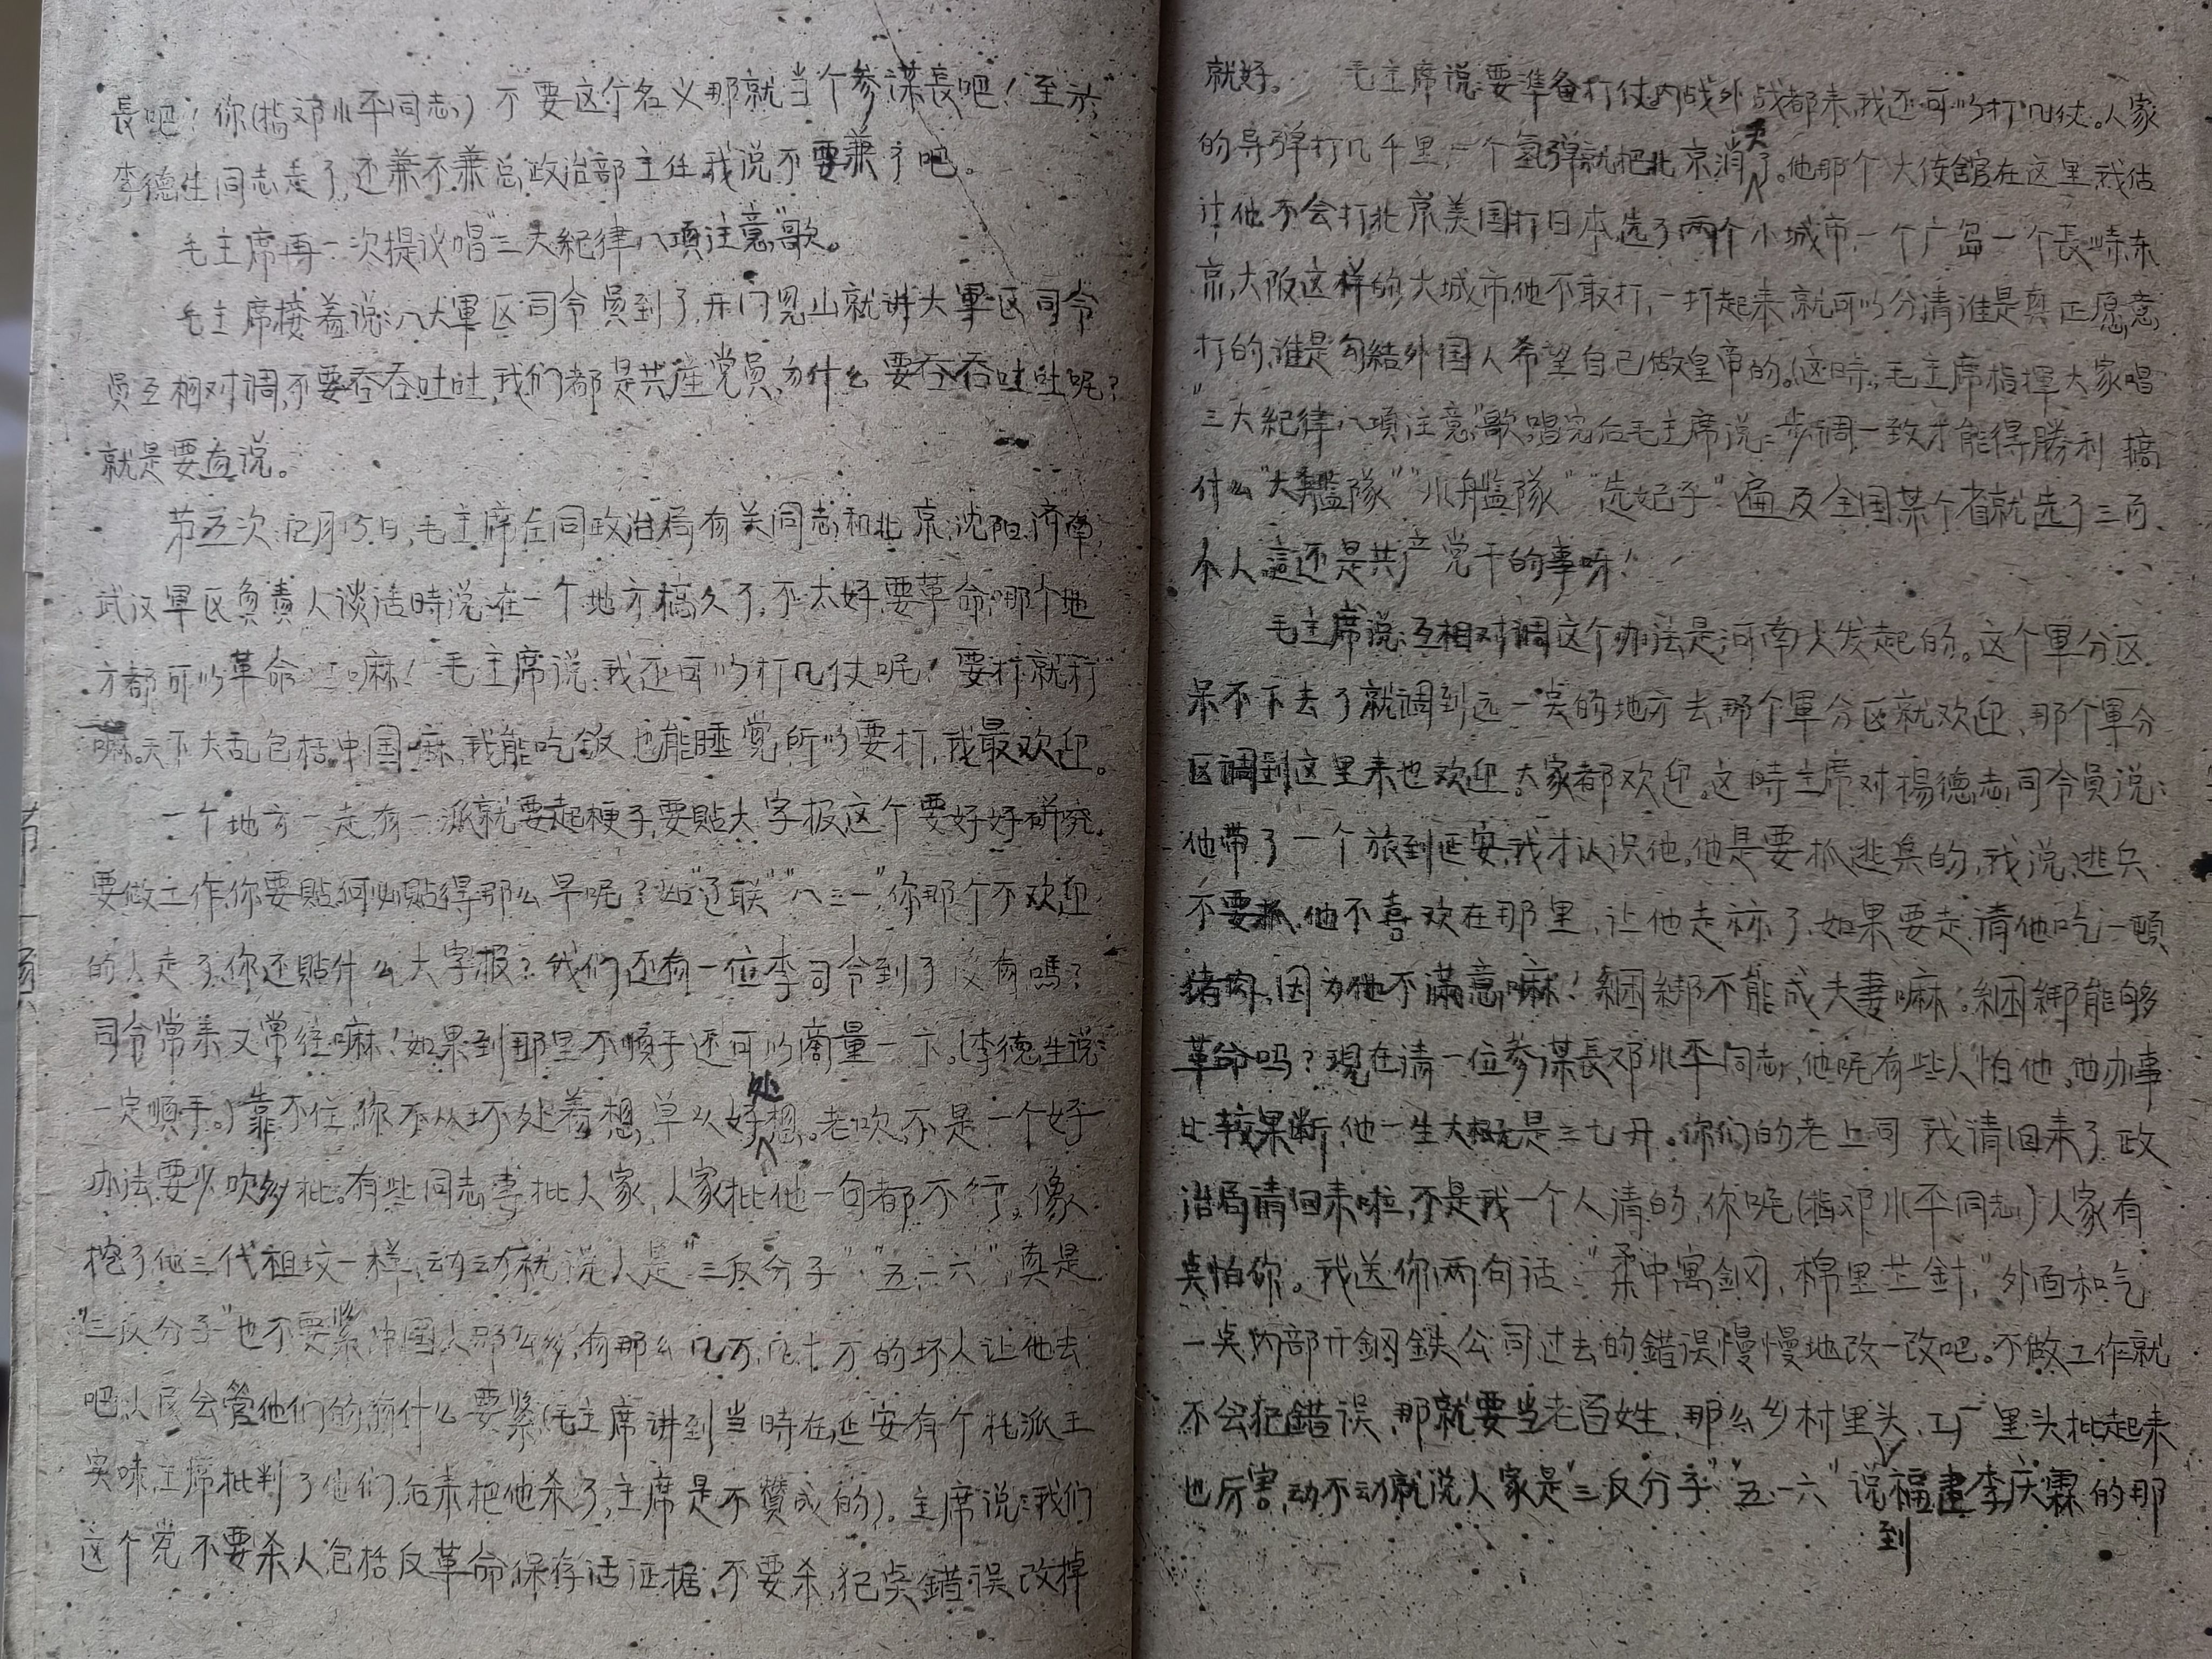 長吧！你(指邓小平同志)不要这个名义那就当个参谋長吧！至于
李德生同志走了,还兼不兼总政治部主任,我说不要兼了吧。
毛主席再一次提议唱"三大紀律八項注意"歌。
毛主席接着说:八大軍区司令員到了,开门见山就讲大軍区司令
員互相对调,不要吞吞吐吐,我们都是共産党員,为什么要吞吞吐吐呢?
就是要直说。
第五次:12月15日,毛主席在同政治局有关同志和北京,沈阳,济南,
武汉軍区負責人谈话時说:在一个地方搞久了,不太好,要革命,哪个地
方都可以革命嘛！毛主席说:我还可以打几仗呢！要打就打
嘛。天下大乱包括中国嘛,我能吃飯也能睡觉所以要打,我最欢迎。
一个地方一走有一派就要起梗子,要貼大字报这个要好好研究。
要做工作,你要貼何必貼得那么早呢?如"辽联""八三一",你那个不欢迎
的人走了,你还貼什么大字报?我们还有一位李司令到了没有嗎?
司令常来又常往嘛！如果到那里不顺手还可以商量一下。(李德生说:
一定顺手。)靠不住,你不从坏处着想,单从好处想。老吹,不是一个好
办法,要少吹多批。有些同志専批人家,人家批他一句都不行,像
挖了他三代祖坟一样,动动就说人是"三反分子""五·一六",真是
"三反分子"也不要緊,中国人那么多,有那么几万,几十万的坏人让他去
吧,人民会管他们的,有什么要緊(毛主席讲到当時在延安有个托派王
实味,主席批判了他们,后来把他杀了,主席是不贊成的)。主席说:我们
这个党不要杀人包括反革命,保存活证据,不要杀,犯奌錯误改掉
就好。 毛主席说:要準备打仗,内战外战都来,我还可以打几仗。人家
的导弹打几千里,一个氢弹就把北京消灭了。他那个大使館在这里,我估
计他不会打北京美国打日本选了两个小城市,一个广岛一个長崎东
京,大阪这样的大城市他不敢打,一打起来就可以分清谁是真正愿意
打的,谁是勾結外国人希望自己做皇帝的。(这時,毛主席指揮大家唱
"三大紀律八項注意"歌。唱完后毛主席说:步调一致才能得勝利 搞
什么"大艦隊""小艦隊""选妃子"遍及全国某个省就选了三百
个人,這还是共产党干的事呀！
毛主席说:互相对调这个办法是河南人发起的。这个軍分区
呆不下去了就调到远一奌的地方去,那个軍分区就欢迎,那个軍分
区调到这里来也欢迎。大家都欢迎。这時主席对楊德志司令員说:
他带了一个旅到延安,我才认识他,他是要抓逃兵的,我说,逃兵
不要抓,他不喜欢在那里,让他走祘了,如果要走,请他吃一頓
猪肉,因为他不滿意嘛！綑綁不能成夫妻嘛！綑綁能够
革命吗?現在请一位参谋長邓小平同志,他呢有些人怕他,他办事
比較果断,他一生大概是三七开。你们的老上司,我请回来了,政
治局请回来啦,不是我一个人请的,你呢(指邓小平同志)人家有
奌怕你。我送你两句话:"柔中寓鋼,棉里芷針,"外面和气
一奌,内部开鋼鉄公司过去的錯误慢慢地改一改吧。不做工作就
不会犯錯误,那就要当老百姓,那么乡村里头,工厂里头批起来
也厉害,动不动就说人家是"三反分子""五·一六"说到福建李庆霖的那